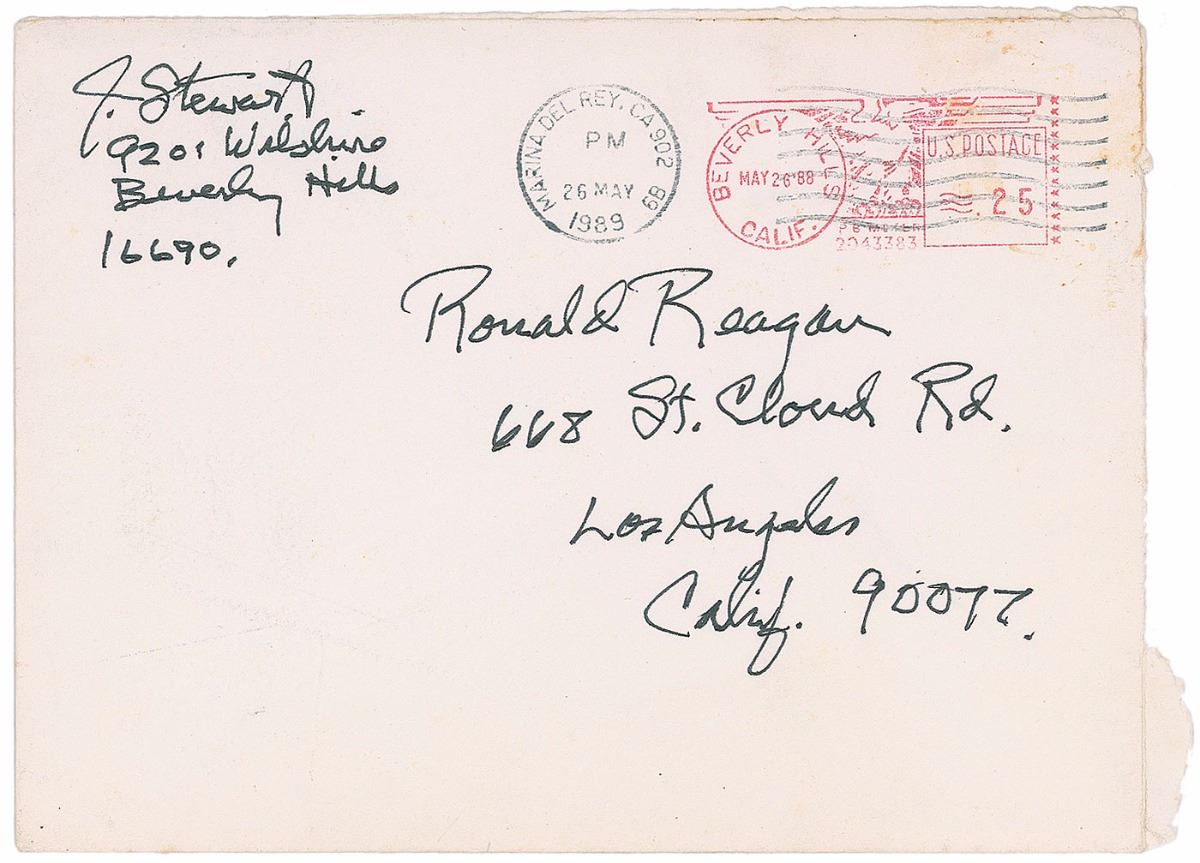 J. Stewart
9201 Wilshire
Beverly Hills
16690.
MARINA DEL REY, CA 902
PM
26 MAY
1989
BEVERLY HILLS
MAY 26 '88
CALIF.
U.S. POSTAGE
.25
P B METER
2043383
Ronald Reagan
668 St. Cloud Rd.
Los Angeles
Calif. 90077.